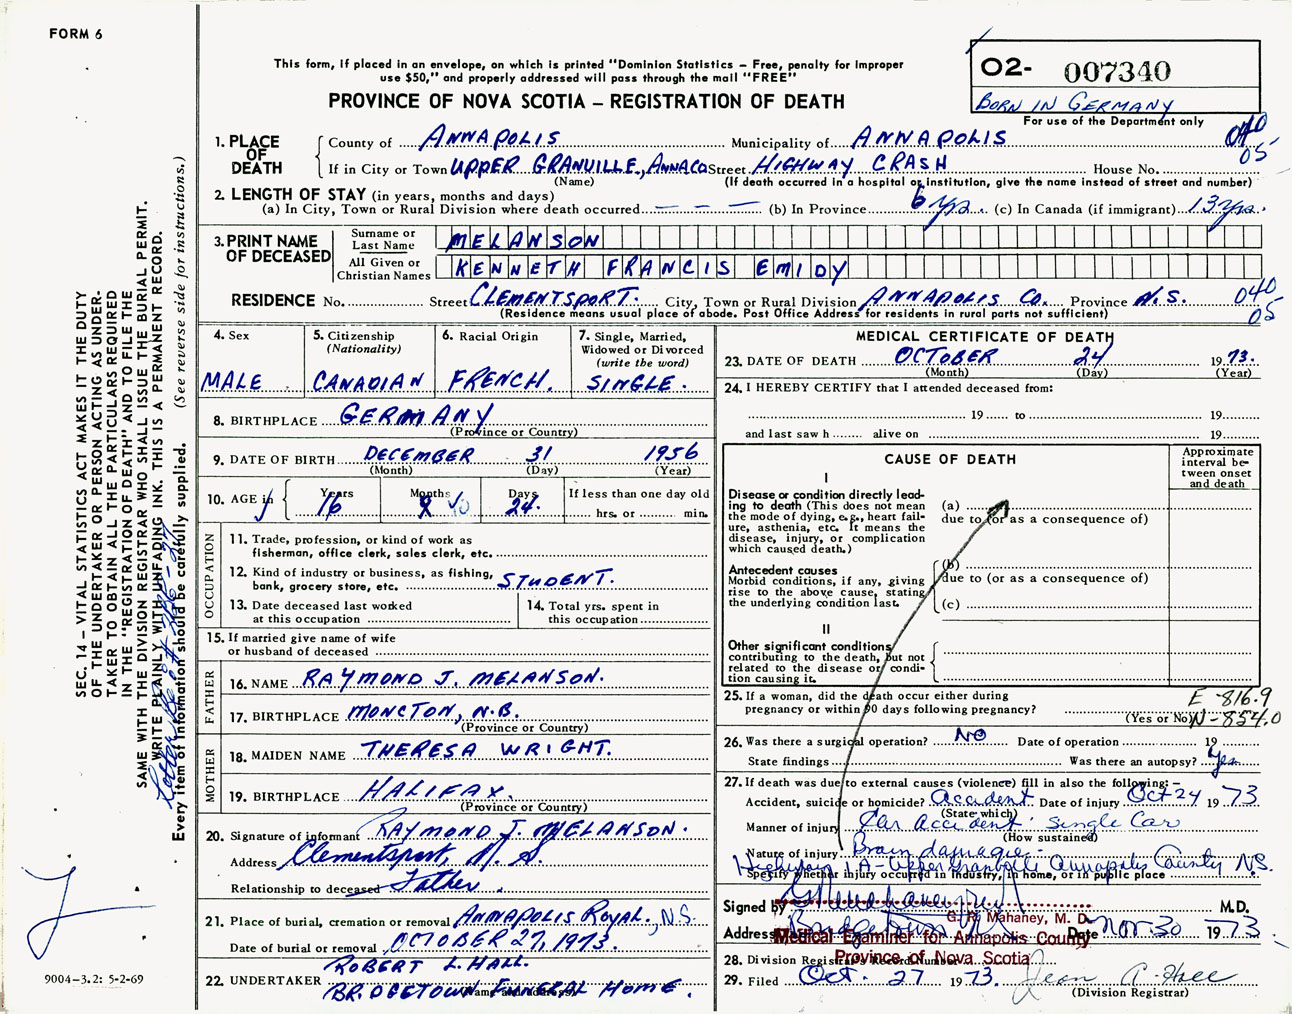 FORM 6
This form, if placed in an envelope, on which is printed "Dominion Statistics – Free, penalty for improper
use $50," and properly addressed will pass through the mail "FREE"
PROVINCE OF NOVA SCOTIA – REGISTRATION OF DEATH
O2- 007340
BORN IN GERMANY
For use of the Department only
040
05
1. PLACE OF DEATH County of ANNAPOLIS Municipality of ANNAPOLIS
If in City or Town UPPER GRANVILLE, ANNA CO Street HIGHWAY CRASH House No.
(Name) (If death occurred in a hospital or institution, give the name instead of street and number)
2. LENGTH OF STAY (in years, months and days)
(a) In City, Town or Rural Division where death occurred — — — (b) In Province 6 yrs. (c) In Canada (if immigrant) 13 yrs.
3. PRINT NAME OF DECEASED
Surname or Last Name MELANSON
All Given or Christian Names KENNETH FRANCIS EMIDY
RESIDENCE No. Street CLEMENTSPORT. City, Town or Rural Division ANNAPOLIS CO. Province N.S. 040
05
(Residence means usual place of abode. Post Office Address for residents in rural parts not sufficient)
4. Sex MALE
5. Citizenship (Nationality) CANADIAN
6. Racial Origin FRENCH.
7. Single, Married, Widowed or Divorced (write the word) SINGLE.
8. BIRTHPLACE GERMANY
(Province or Country)
9. DATE OF BIRTH DECEMBER 31 1956
(Month) (Day) (Year)
10. AGE in Years 16 Months 9 10 Days 24. If less than one day old
hrs. or min.
OCCUPATION
11. Trade, profession, or kind of work as
fisherman, office clerk, sales clerk, etc.
12. Kind of industry or business, as fishing,
bank, grocery store, etc. STUDENT.
13. Date deceased last worked
at this occupation
14. Total yrs. spent in
this occupation
15. If married give name of wife
or husband of deceased
FATHER
16. NAME RAYMOND J. MELANSON.
17. BIRTHPLACE MONCTON, N.B.
(Province or Country)
MOTHER
18. MAIDEN NAME THERESA WRIGHT.
19. BIRTHPLACE HALIFAX.
(Province or Country)
20. Signature of informant RAYMOND J. MELANSON.
Address Clementsport, N.S.
Relationship to deceased Father.
21. Place of burial, cremation or removal ANNAPOLIS ROYAL, N.S.
Date of burial or removal OCTOBER 27, 1973.
22. UNDERTAKER ROBERT L. HALL.
BRIDGETOWN FUNERAL HOME.
(Name and address)
MEDICAL CERTIFICATE OF DEATH
23. DATE OF DEATH OCTOBER 24 1973.
(Month) (Day) (Year)
24. I HEREBY CERTIFY that I attended deceased from:
19 to 19
and last saw h alive on 19
CAUSE OF DEATH
Approximate interval between onset and death
I
Disease or condition directly leading to death (This does not mean the mode of dying, e.g., heart failure, asthenia, etc. It means the disease, injury, or complication which caused death.)
(a)
due to (or as a consequence of)
Antecedent causes
Morbid conditions, if any, giving rise to the above cause, stating the underlying condition last.
(b)
due to (or as a consequence of)
(c)
II
Other significant conditions
contributing to the death, but not related to the disease or condition causing it.
25. If a woman, did the death occur either during
pregnancy or within 90 days following pregnancy?
(Yes or No)
E-816.9
N-854.0
26. Was there a surgical operation? NO Date of operation 19
State findings Was there an autopsy? Yes
27. If death was due to external causes (violence) fill in also the following:–
Accident, suicide or homicide? Accident Date of injury Oct 24 1973
(State which)
Manner of injury Car accident: Single Car
(How sustained)
Nature of injury Brain damage -
Highway 1A - Upper Granville Annapolis County N.S.
Specify whether injury occurred in industry, in home, or in public place
Signed by M.D.
G. R. Mahaney, M. D.
Address Bridgetown NS Date Nov 30 1973
Medical Examiner for Annapolis County
Province of Nova Scotia
28. Division Registrar's Record Number
29. Filed Oct. 27 1973. Jean A. Hall
(Division Registrar)
SEC. 14 – VITAL STATISTICS ACT MAKES IT THE DUTY
OF THE UNDERTAKER OR PERSON ACTING AS UNDER-
TAKER TO OBTAIN ALL THE PARTICULARS REQUIRED
IN THE "REGISTRATION OF DEATH" AND TO FILE THE
SAME WITH THE DIVISION REGISTRAR WHO SHALL ISSUE THE BURIAL PERMIT.
WRITE PLAINLY WITH UNFADING INK. THIS IS A PERMANENT RECORD.
Every item of information should be carefully supplied. (See reverse side for instructions.)
9004–3.2: 5-2-69